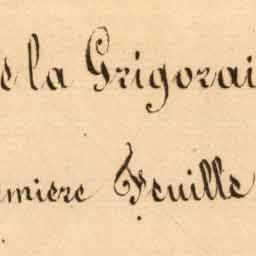 e la Grigorai
miere Feuille